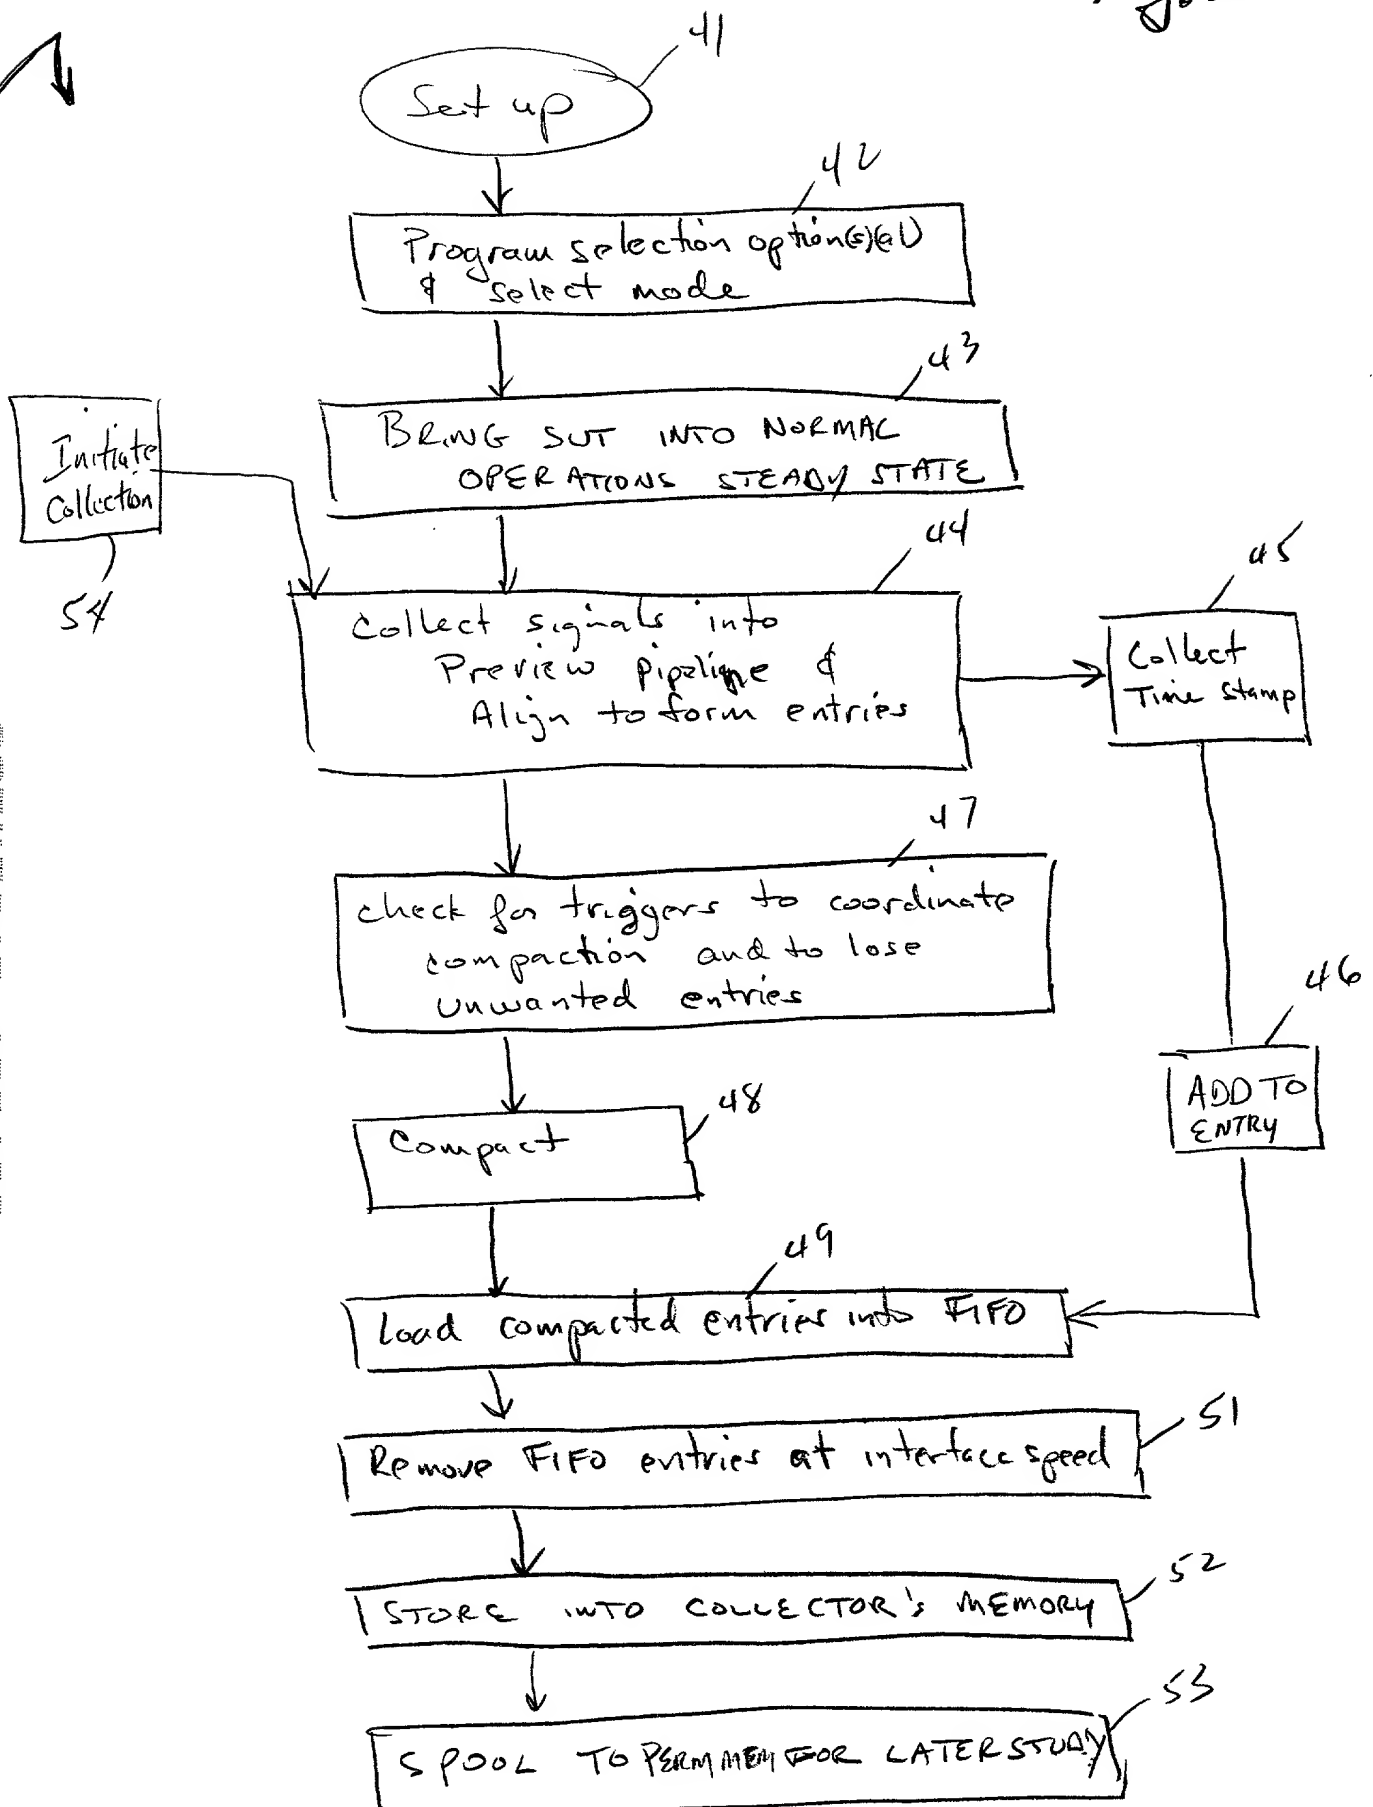 41
Set up
42
Program selection option(s)
& select mode
43
BRING SUT INTO NORMAL
OPERATIONS STEADY STATE
Initiate
Collection
54
44
Collect signals into
Preview pipeline &
Align to form entries
45
Collect
Time stamp
47
check for triggers to coordinate
compaction and to lose
unwanted entries
46
ADD TO
ENTRY
48
Compact
49
Load compacted entries into FIFO
51
Remove FIFO entries at interface speed
52
STORE INTO COLLECTOR'S MEMORY
53
SPOOL TO PERM MEM FOR LATER STUDY